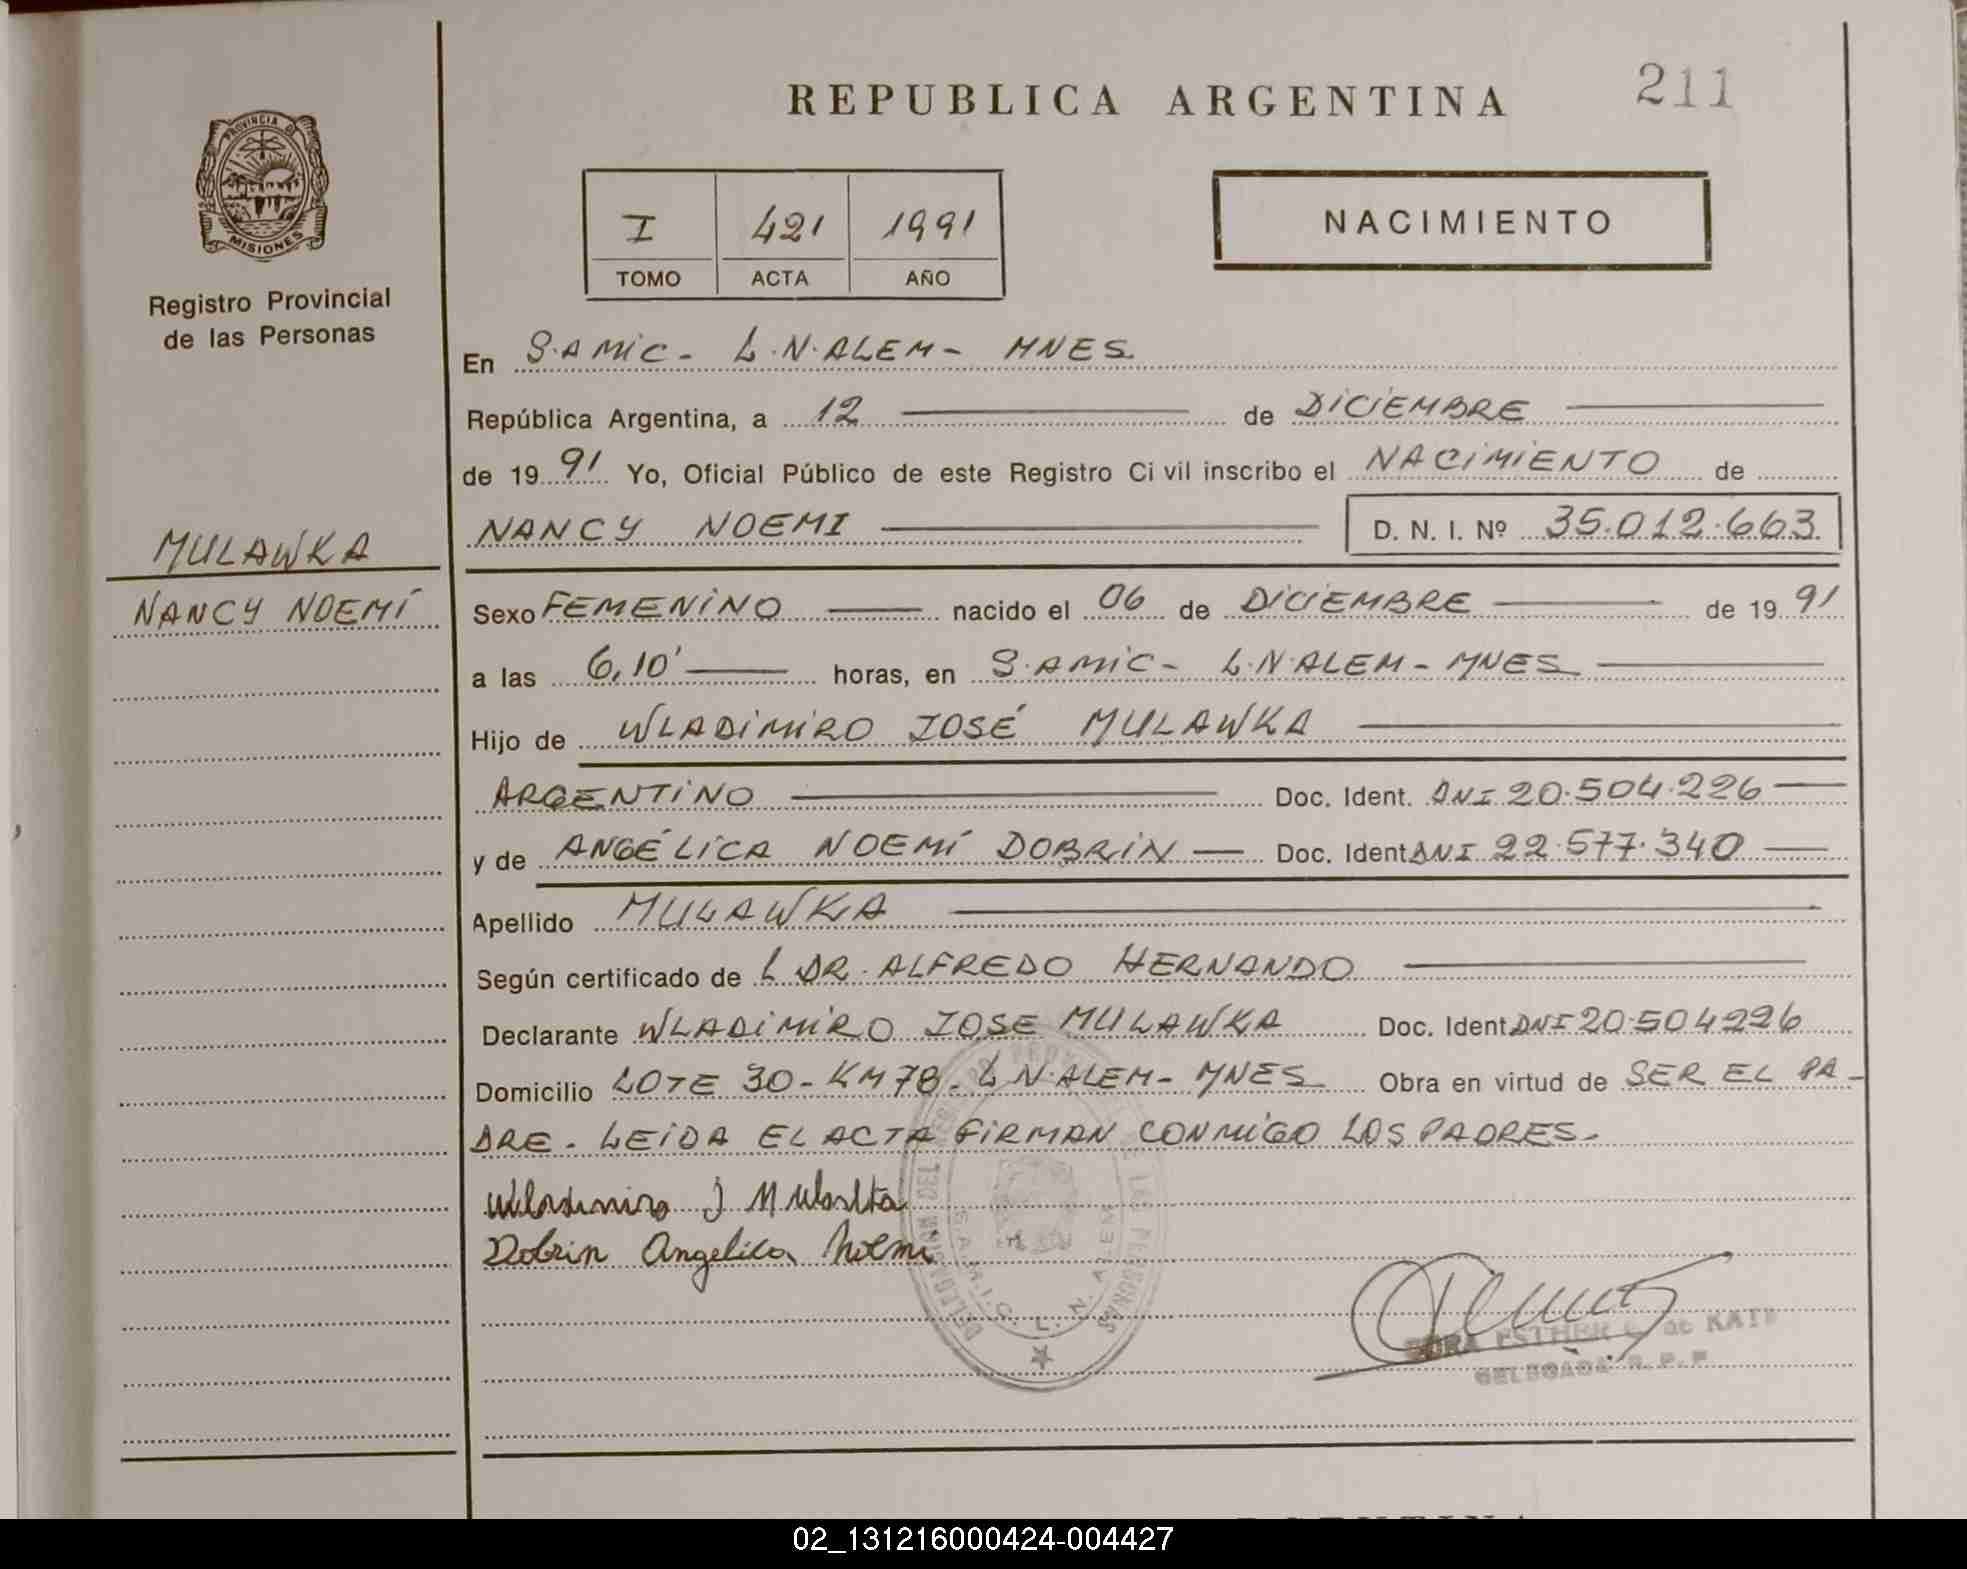 REPUBLICA ARGENTINA
211
PROVINCIA DE
MISIONES
Registro Provincial
de las Personas
I 421 1991
TOMO ACTA AÑO
NACIMIENTO
En S.AMIC- L.N.ALEM- MNES.
República Argentina, a 12 de DICIEMBRE
de 19 91 Yo, Oficial Público de este Registro Civil inscribo el NACIMIENTO de
NANCY NOEMI D. N. I. Nº 35.012.663
MULAWKA
NANCY NOEMÍ
Sexo FEMENINO nacido el 06 de DICIEMBRE de 19 91
a las 6,10' horas, en S.AMIC- L.N.ALEM- MNES
Hijo de WLADIMIRO JOSÉ MULAWKA
ARGENTINO Doc. Ident. DNI 20.504.226
y de ANGÉLICA NOEMÍ DOBRIN Doc. Ident DNI 22.577.340
Apellido MULAWKA
Según certificado de L DR. ALFREDO HERNANDO
Declarante WLADIMIRO JOSE MULAWKA Doc. Ident DNI 20.504226
Domicilio LOTE 30- KM78- L N.ALEM- MNES Obra en virtud de SER EL PA-
DRE. LEIDA EL ACTA FIRMAN CONMIGO LOS PADRES.
Wladimiro J Mulawka
Dobrin Angelica Noemi
DELEGACION DEL REGISTRO PROVINCIAL DE LAS PERSONAS
S.A.M.I.C. L. N. ALEM
ESTHER de
DELEGADA R.P.P.
02_131216000424-004427